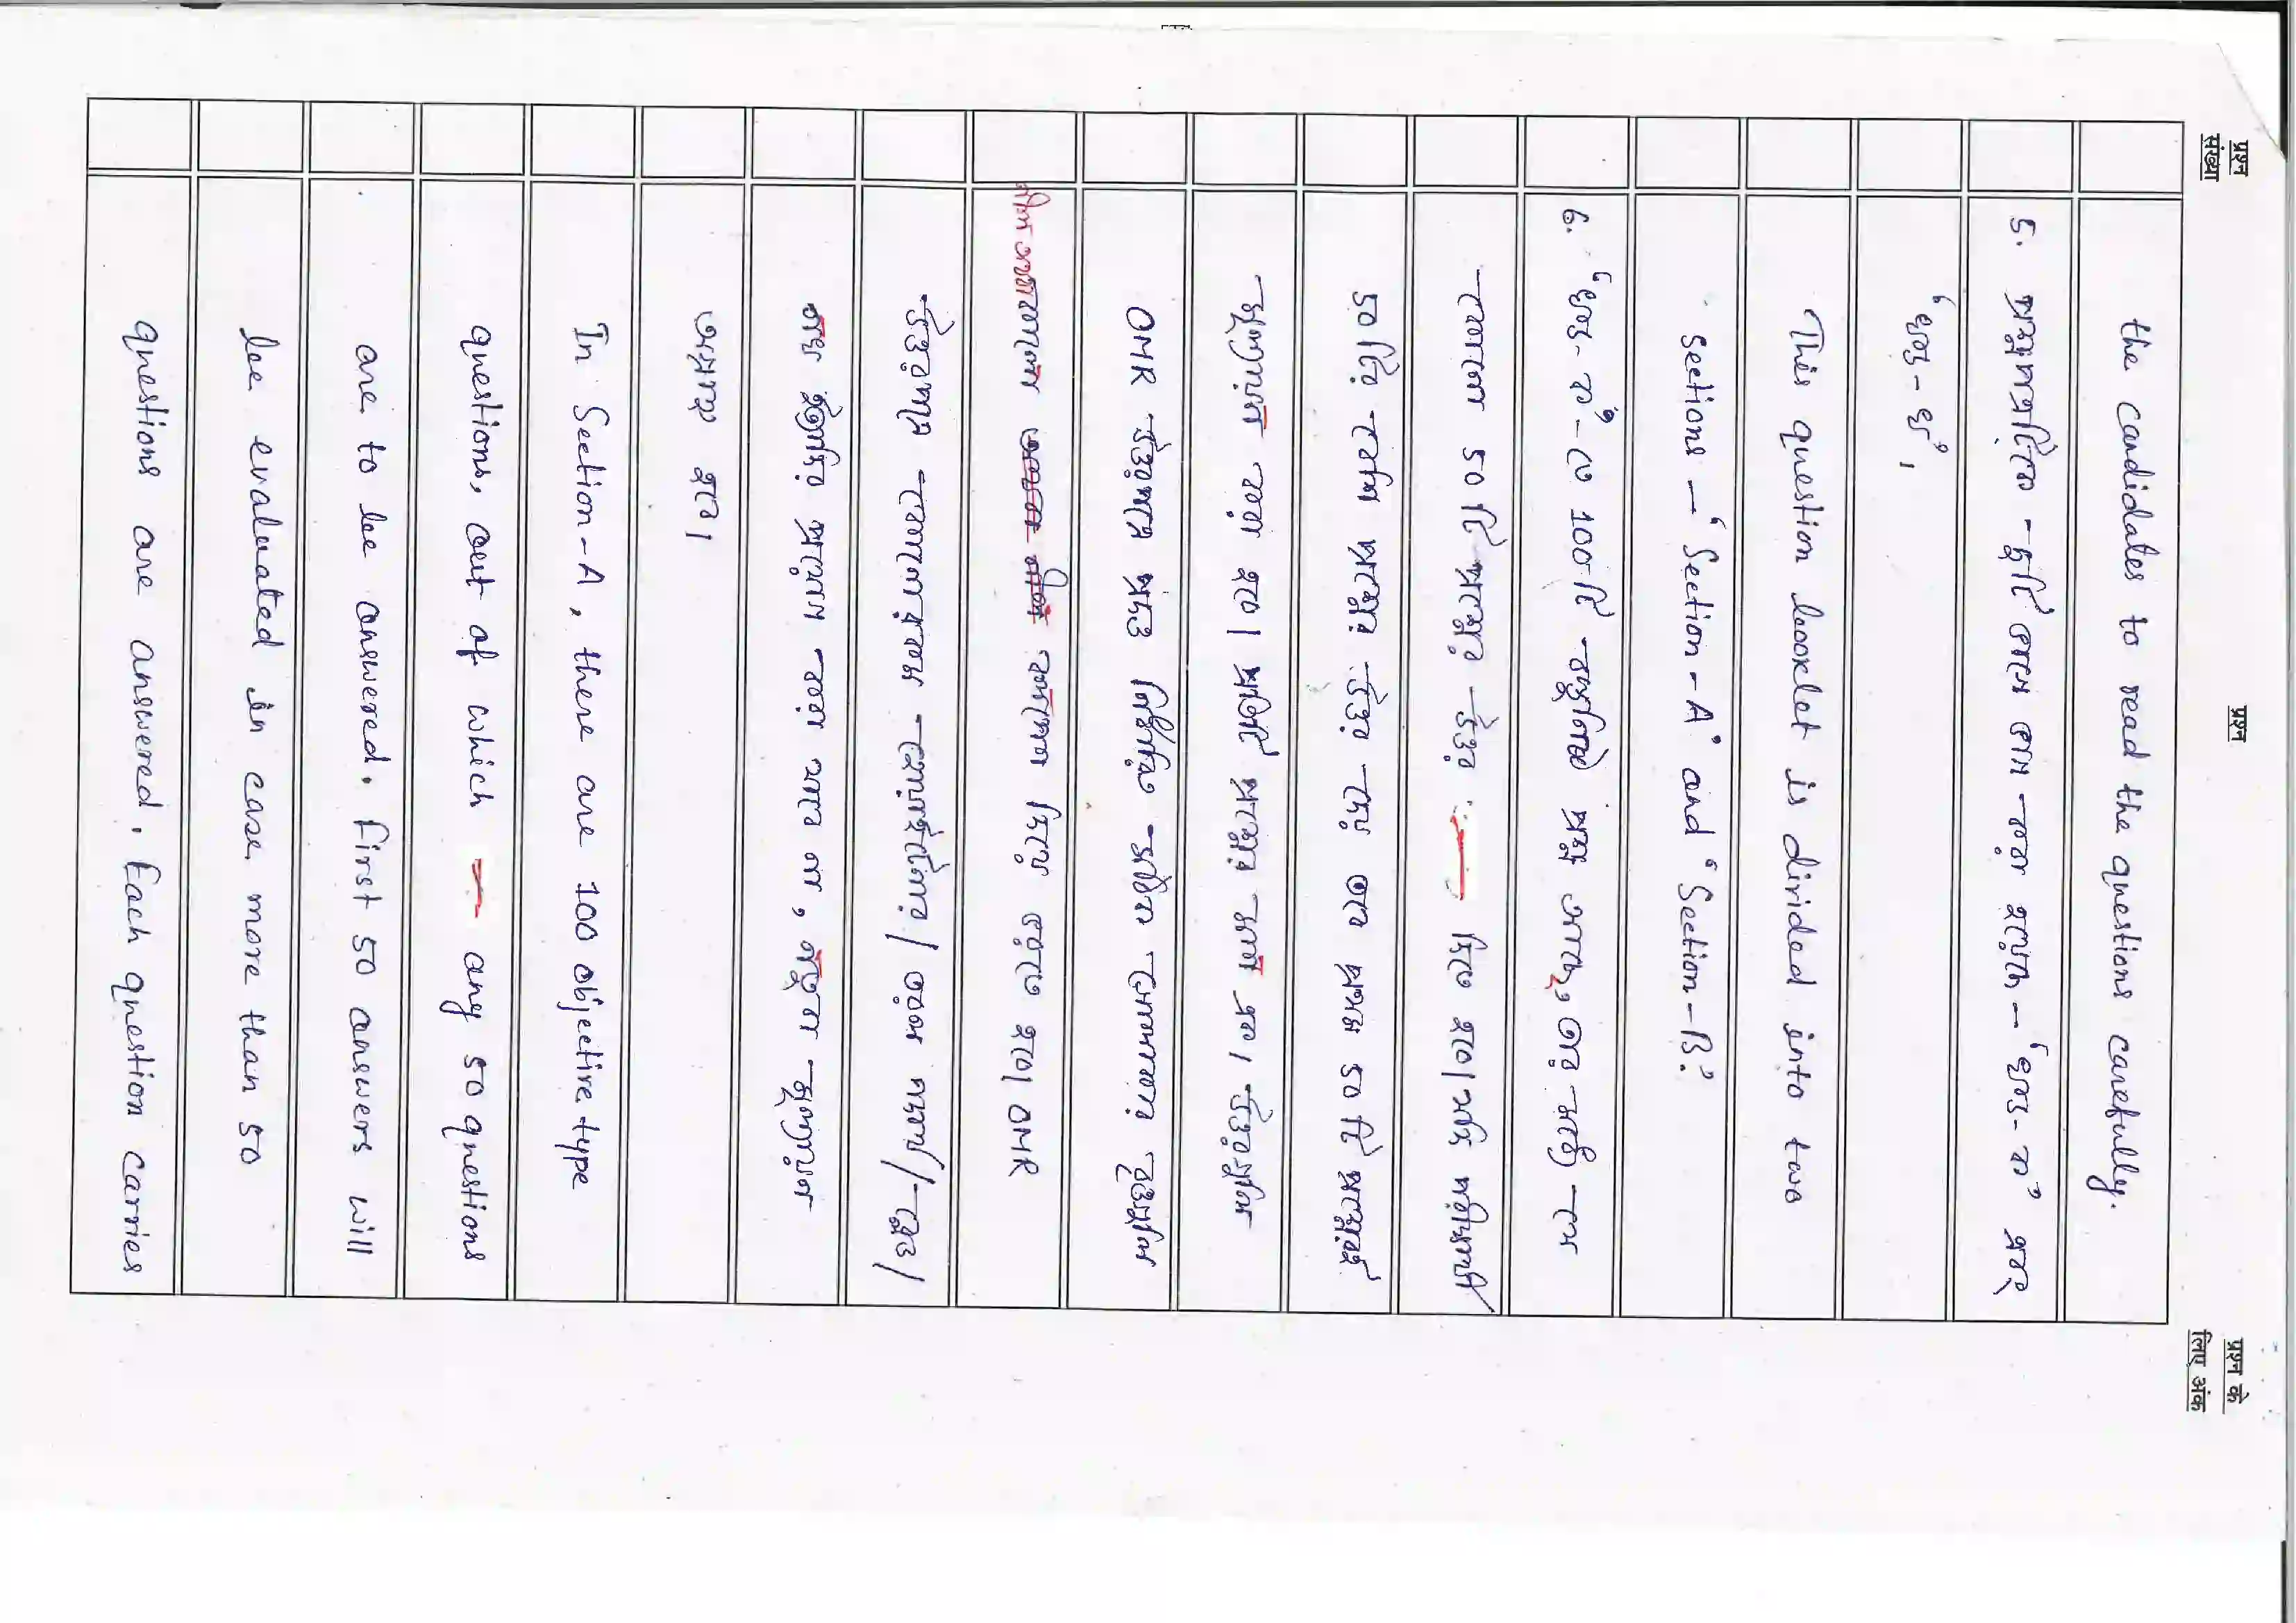 प्रश्न संख्या
प्रश्न
प्रश्न के लिए अंक
the candidates to read the questions carefully.
5. প্রশ্নপত্রটিকে দুটি ভাগে ভাগ করা হয়েছে — 'খণ্ড-ক' এবং
'খণ্ড-খ',
This question booklet is divided into two
sections — 'Section-A' and 'Section-B'.
6. 'খণ্ড-ক'-তে 100টি বস্তুনিষ্ঠ প্রশ্ন আছে, তার মধ্যে যে
কোনো 50টি প্রশ্নের উত্তর দিতে হবে। যদি পরীক্ষার্থী
50টির বেশি প্রশ্নের উত্তর দেয় তবে প্রথম 50টি প্রশ্নেরই
মূল্যায়ন করা হবে। প্রতিটি প্রশ্নের মান এক। উত্তরগুলি
OMR উত্তরপত্রে প্রদত্ত নির্ধারিত সঠিক গোলাকার বৃত্তগুলি
নীল অথবা কালো কালির কলম দিয়ে ভরতে হবে। OMR
উত্তরপত্রে কোনোপ্রকার হোয়াইটনার / তরল পদার্থ / ব্লেড /
নখ ইত্যাদির প্রয়োগ করা যাবে না, নতুবা মূল্যায়ন
অমান্য হবে।
In Section-A, there are 100 objective type
questions, out of which any 50 questions
are to be answered. First 50 answers will
be evaluated in case more than 50
questions are answered. Each question carries